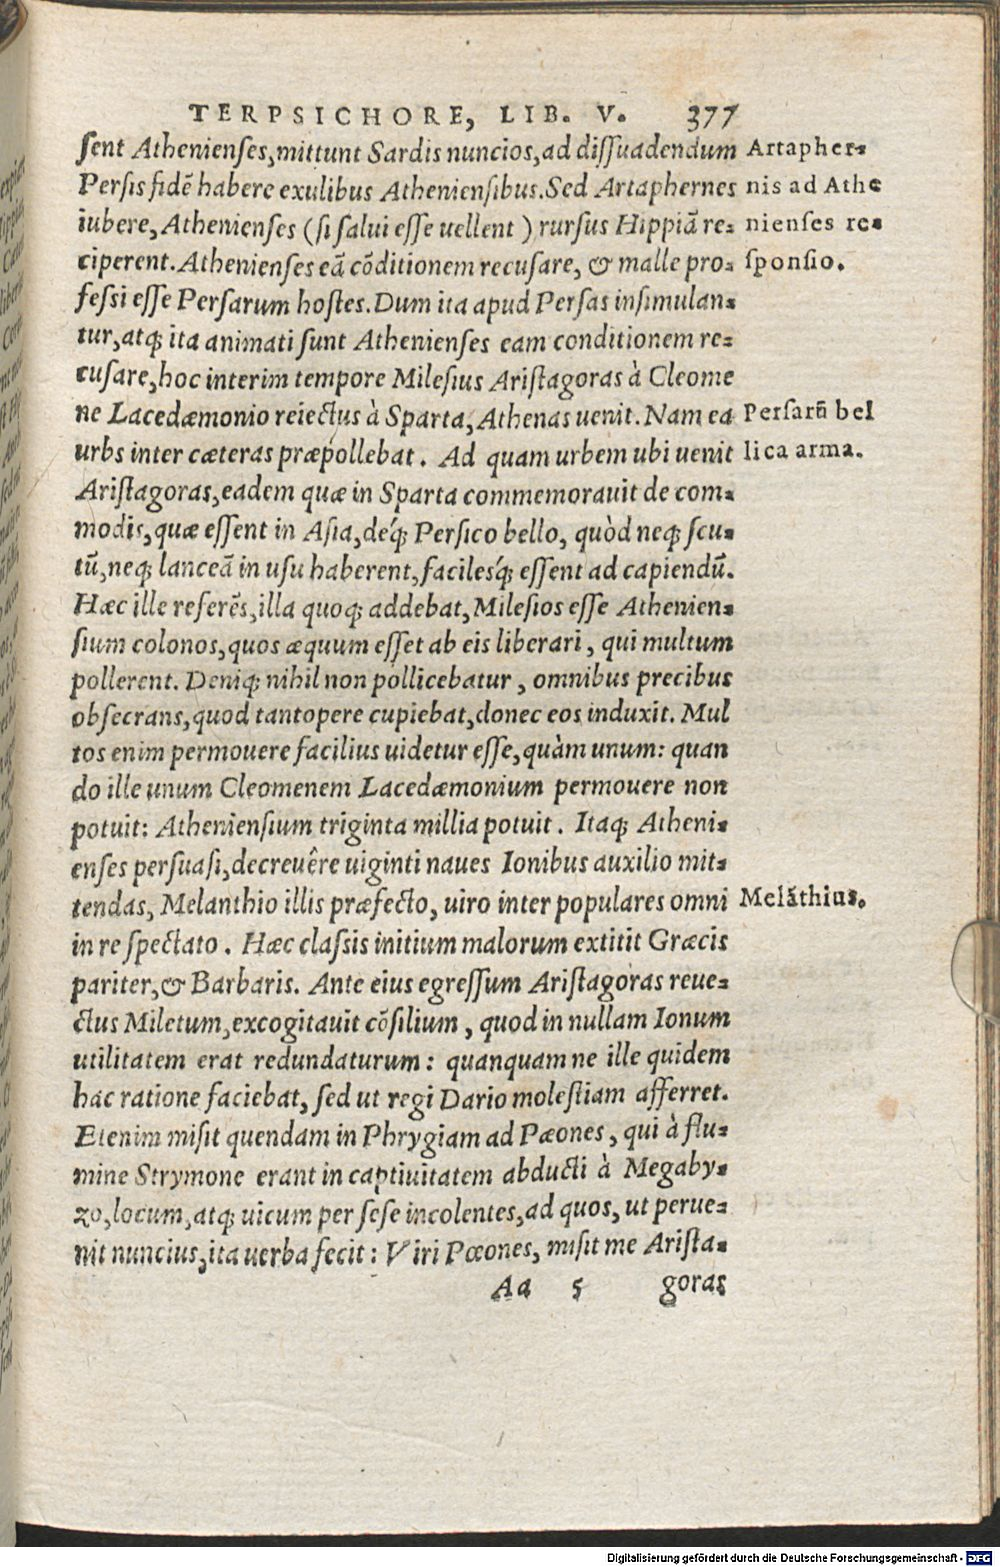 TERPSICHORE, LIB. V. 377
ſent Athenienſes, mittunt Sardis nuncios, ad diſſuadendum
Perſis fidē habere exulibus Athenienſibus. Sed Artaphernes
iubere, Athenienſes (ſi ſalui eſſe uellent) rurſus Hippiā re-
ciperent. Athenienſes eā cōditionem recuſare, & malle pro-
feſſi eſſe Perſarum hoſtes. Dum ita apud Perſas inſimulan-
tur, atq; ita animati ſunt Athenienſes eam conditionem re-
cuſare, hoc interim tempore Mileſius Ariſtagoras à Cleome
ne Lacedæmonio reiectus à Sparta, Athenas uenit. Nam ea
urbs inter cæteras præpollebat. Ad quam urbem ubi uenit
Ariſtagoras, eadem quæ in Sparta commemorauit de com-
modis, quæ eſſent in Aſia, deq́; Perſico bello, quòd neq; ſcu-
tū, neq; lanceā in uſu haberent, facileſq́; eſſent ad capiendū.
Hæc ille referēs, illa quoq; addebat, Mileſios eſſe Athenien-
ſium colonos, quos æquum eſſet ab eis liberari, qui multum
pollerent. Deniq; nihil non pollicebatur, omnibus precibus
obſecrans, quod tantopere cupiebat, donec eos induxit. Mul
tos enim permouere facilius uidetur eſſe, quàm unum: quan
do ille unum Cleomenem Lacedæmonium permouere non
potuit: Athenienſium triginta millia potuit. Itaq; Atheni-
enſes perſuaſi, decreuêre uiginti naues Ionibus auxilio mit-
tendas, Melanthio illis præfecto, uiro inter populares omni
in re ſpectato. Hæc claſsis initium malorum extitit Græcis
pariter, & Barbaris. Ante eius egreſſum Ariſtagoras reue-
ctus Miletum, excogitauit cōſilium, quod in nullam Ionum
utilitatem erat redundaturum: quanquam ne ille quidem
hac ratione faciebat, ſed ut regi Dario moleſtiam afferret.
Etenim miſit quendam in Phrygiam ad Pæones, qui à flu-
mine Strymone erant in captiuitatem abducti à Megaby-
zo, locum, atq; uicum per ſeſe incolentes, ad quos, ut perue-
nit nuncius, ita uerba fecit: Viri Pœones, miſit me Ariſta-
Aa 5 goras
Artapher-
nis ad Athe
nienſes re-
ſponſio.
Perſarū bel
lica arma.
Melāthius.
Digitalisierung gefördert durch die Deutsche Forschungsgemeinschaft - DFG